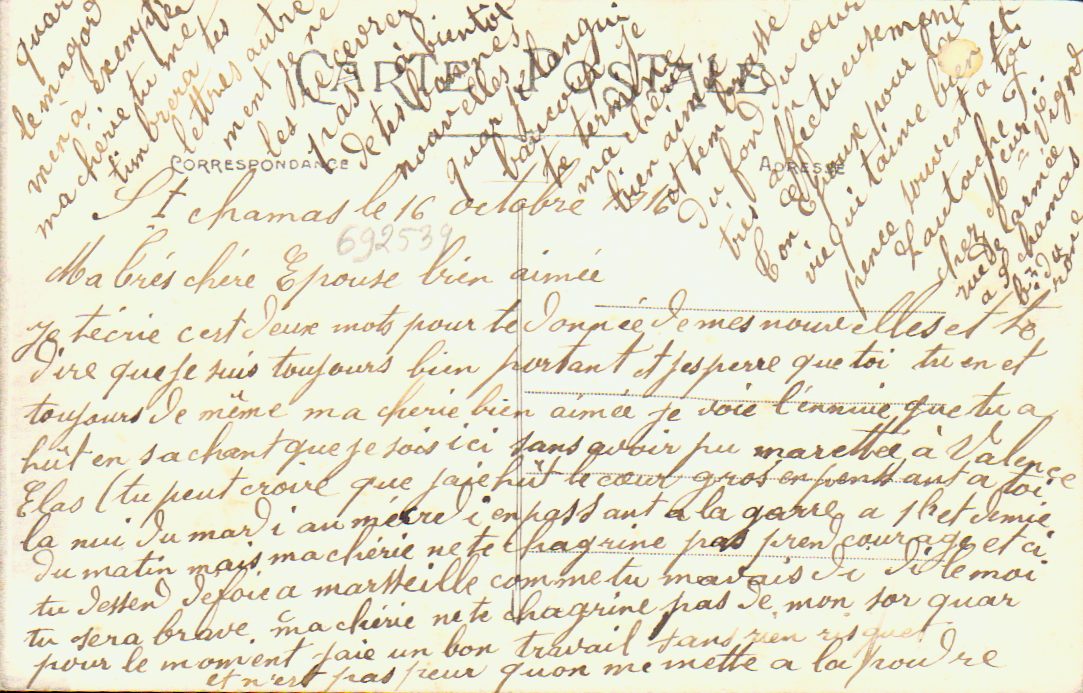 CARTE POSTALE
CORRESPONDANCE
ADRESSE
St chamas le 16 octobre 1916
692539
Ma trés chére Epouse bien aimée
Je técrie cert deux mots pour te donnée de mes nouvelles et te
dire que je suis toujours bien portant et jesperre que toi tu en et
toujours de même ma cherie bien aimée je voie l'ennuie que tu a
hût en sachant que je sois ici sans avoir pu marettée à Valence
Elas (tu peut croire que jaie hût le cœur gros en penssant a toi
la nui du mardi au mécredi en passant a la garre a 1h et demie
du matin mais ma chérie ne te chagrine pas prend courage et ci
tu dessend défoie a marsseille comme tu mavais di di le moi
tu sera brave. ma chérie ne te chagrine pas de mon sor quar
pour le moment jaie un bon travail sans rien risquer
et n'est pas peur quon me mette a la poudre
quar
le magord
men à exemptée
ma chérie tu me
tim brera tes
lettres autre
ment je ne
les recevrez
pas à bientot
de tes bonnes
nouvelles
quar je langui
baucoup je
te termine
ma chérie
bien aimée
et tembrasse
du fond du cœur
trés affectueusement
ton Epoux pour la
vie qui taime bien et
pence souvent a toi
chez Mr
rue de larmée
a St chamas
bh du
rone